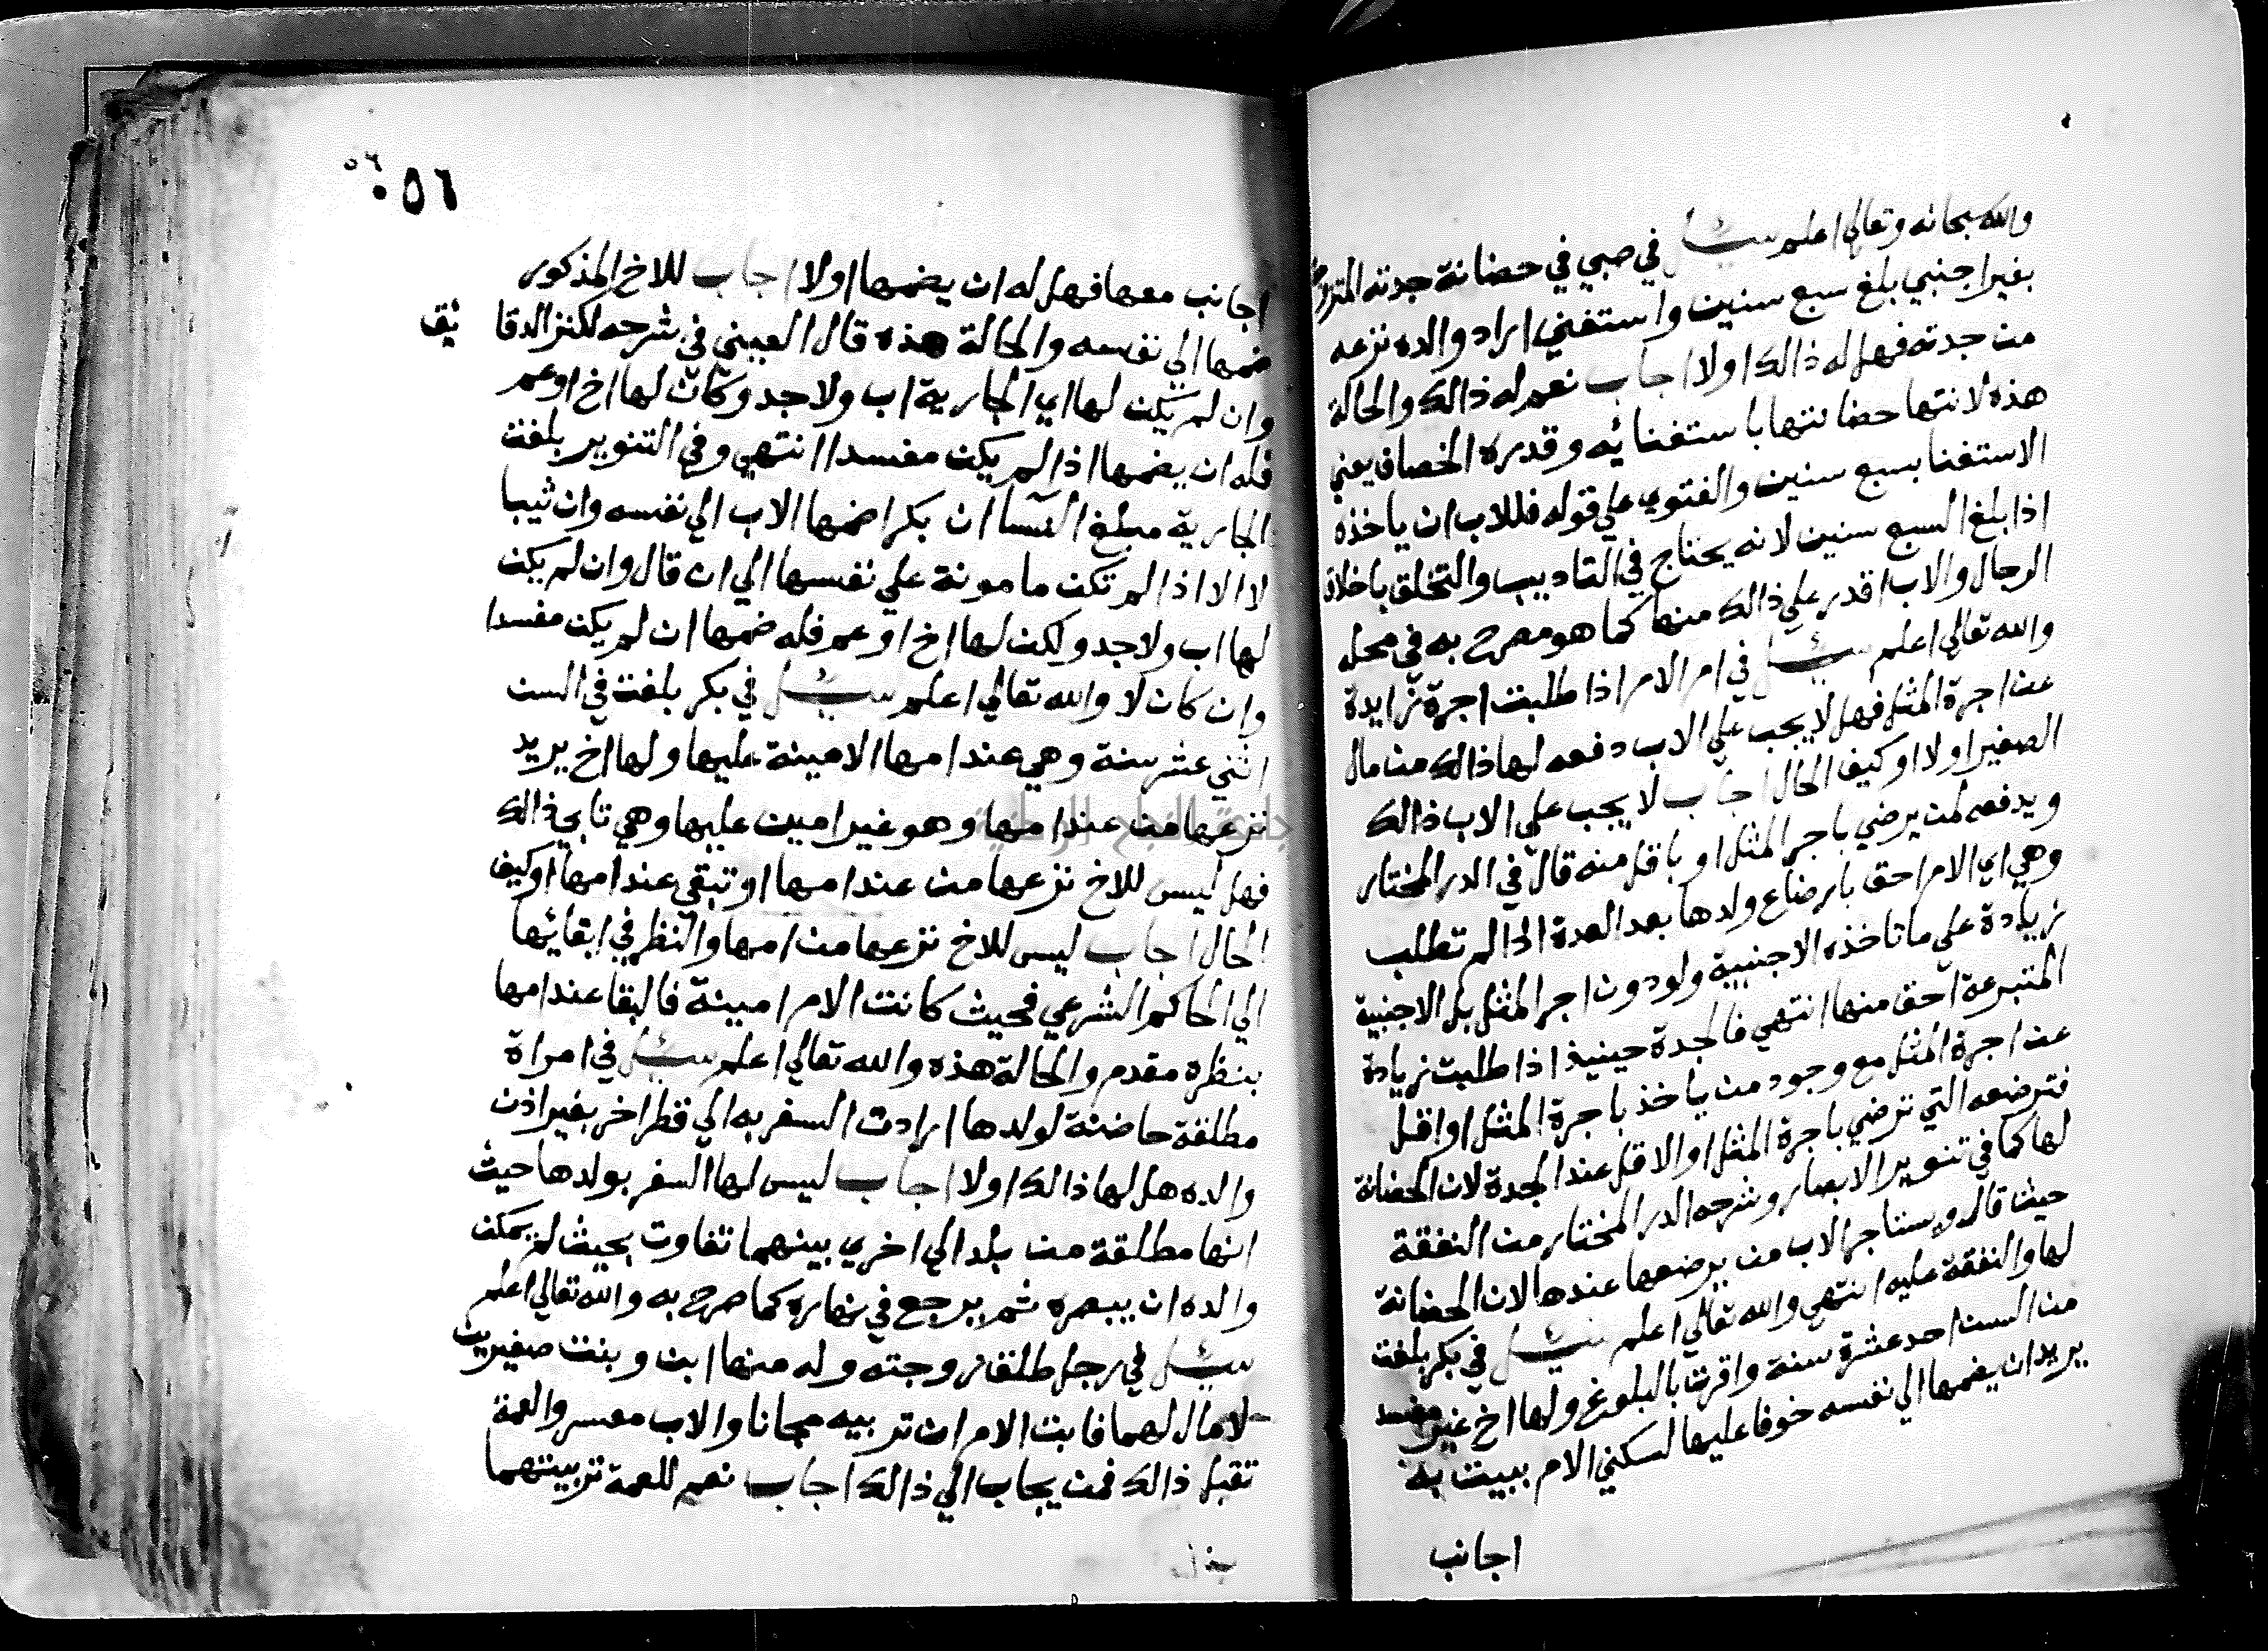 والله سبحانه وتعالي اعلم سئل في صبي في حضانة جدته المتزوجة
بغير اجنبي بلغ سبع سنين واستغني اراد والده نزعه
من جدته فهل له ذالك اولا اجاب نعم له ذالك والحالة
هذه لانتها حضانتها باستغنائه وقدره الخصاف يعني
الاستغنا بسبع سنين والفتوي علي قوله فللاب ان ياخذه
اذا بلغ السبع سنين لانه يحتاج في التاديب والتخلق باخلاق
الرجال والاب اقدر علي ذالك منها كما هو مصرح به في محله
والله تعالي اعلم سئل في ام الام اذا طلبت اجرة زايدة
عن اجرة المثل فهل لا يجب علي الاب دفعه لها ذالك من مال
الصغير اولا او كيف الحال اجاب لا يجب علي الاب ذالك
ويدفعه لمن يرضي باجر المثل او باقل منه قال في الدر المختار
وهي اي الام احق بارضاع ولدها بعد العدة اذا لم تطلب
زيادة علي ما تاخذه الاجنبية ولو دون اجر المثل بل الاجنبية
المتبرعة احق منها انتهي فالجدة حينيذ اذا طلبت زيادة
عن اجرة المثل مع وجود من ياخذ باجرة المثل او اقل
فترضعه التي ترضي باجرة المثل او الاقل عند الجدة لان الحضانة
لها كما في تنوير الابصار وشرحه الدر المختار من النفقة
حيث قال ويستاجر الاب من يرضعها عندها لان الحضانة
لها والنفقة عليه انتهي والله تعالي اعلم سئل في بكر بلغت
من السن احد عشرة سنة واقرت بالبلوغ ولها اخ غير مفسد
يريد ان يضمها الي نفسه خوفا عليها لسكني الام ببيت به
اجانب
٥٦
٠٥٦
اجانب معها فهل له ان يضمها اولا اجاب للاخ المذكور
ضمها الي نفسه والحالة هذه قال العيني في شرحه لكنز الدقا ئق
وان لم يكن لها اي الجارية اب ولا جد وكان لها اخ او عم
فله ان يضمها اذا لم يكن مفسدا انتهي وفي التنوير بلغت
الجارية مبلغ النسا ان بكرا ضمها الاب الي نفسه وان ثيبا
لا الا اذا لم تكن مامونة علي نفسها الي ان قال وان لم يكن
لها اب ولا جد ولكن لها اخ او عم فله ضمها ان لم يكن مفسدا
وان كان لا والله تعالي اعلم سئل في بكر بلغت في السن
اثني عشر سنة وهي عند امها الامينة عليها ولها اخ يريد
نزعها من عند امها وهو غير امين عليها وهي تابي ذالك
فهل ليس للاخ نزعها من عند امها او تبقي عند امها او كيف
الحال اجاب ليس للاخ نزعها من امها والنظر في ابقائها
الي الحاكم الشرعي فحيث كانت الام امينة فالبقا عند امها
بنظره مقدم والحالة هذه والله تعالي اعلم سئل في امراة
مطلقة حاضنة لولدها ارادت السفر به الي قطر اخر بغير اذن
والده هل لها ذالك اولا اجاب ليس لها السفر بولدها حيث
انها مطلقة من بلد الي اخري بينهما تفاوت بحيث لم يمكن
والده ان يبصره ثم يرجع في نهاره كما صرح به والله تعالي اعلم
سئل في رجل طلق زوجته وله منها ابن وبنت صغيرين
لا مال لهما فابت الام ان تربيه مجانا والاب معسر والعمة
تقبل ذالك فمن يجاب الي ذالك اجاب نعم للعمة تربيتهما